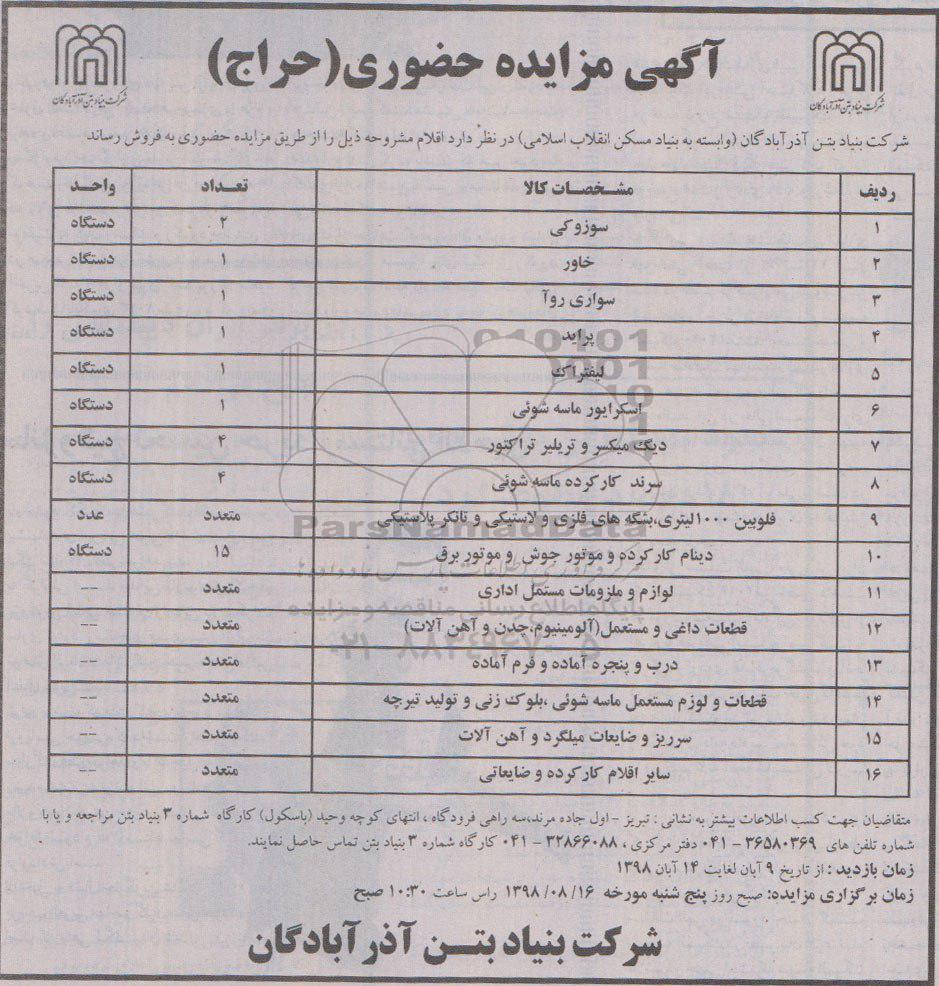 آگهی مزایده حضوری (حراج)
شرکت بنیاد بتن آذرآبادگان
شرکت بنیاد بتن آذرآبادگان
شرکت بنیاد بتن آذرآبادگان (وابسته به بنیاد مسکن انقلاب اسلامی) در نظر دارد اقلام مشروحه ذیل را از طریق مزایده حضوری به فروش رساند:
ردیف مشخصات کالا تعداد واحد
۱ سوزوکی ۲ دستگاه
۲ خاور ۱ دستگاه
۳ سواری روآ ۱ دستگاه
۴ پراید ۱ دستگاه
۵ لیفتراک ۱ دستگاه
۶ اسکرایور ماسه شوئی ۱ دستگاه
۷ دیگ میکسر و تریلیر تراکتور ۴ دستگاه
۸ سرند کارکرده ماسه شوئی ۴ دستگاه
۹ فلوبین ۱۰۰۰لیتری،بشگه های فلزی و لاستیکی و تانکر پلاستیکی متعدد عدد
۱۰ دینام کارکرده و موتور جوش و موتور برق ۱۵ دستگاه
۱۱ لوازم و ملزومات مستمل اداری متعدد --
۱۲ قطعات داغی و مستعمل(آلومینیوم،چدن و آهن آلات) متعدد --
۱۳ درب و پنجره آماده و فرم آماده متعدد --
۱۴ قطعات و لوزم مستعمل ماسه شوئی ،بلوک زنی و تولید تیرچه متعدد --
۱۵ سرریز و ضایعات میلگرد و آهن آلات متعدد --
۱۶ سایر اقلام کارکرده و ضایعاتی متعدد --
ParsNamadData
پایگاه اطلاع رسانی مناقصه و مزایده
۰۲۱-۸۸۳۴۹۶۷۰-۵
متقاضیان جهت کسب اطلاعات بیشتر به نشانی : تبریز - اول جاده مرند،سه راهی فرودگاه ، انتهای کوچه وحید (باسکول) کارگاه شماره ۳ بنیاد بتن مراجعه و یا با
شماره تلفن های ۳۶۵۸۰۳۶۹ - ۰۴۱ دفتر مرکزی ، ۳۲۸۶۶۰۸۸ - ۰۴۱ کارگاه شماره ۳ بنیاد بتن تماس حاصل نمایند.
زمان بازدید : از تاریخ ۹ آبان لغایت ۱۴ آبان ۱۳۹۸
زمان برگزاری مزایده: صبح روز پنج شنبه مورخه ۱۳۹۸/۰۸/۱۶ راس ساعت ۱۰:۳۰ صبح
شرکت بنیاد بتن آذرآبادگان